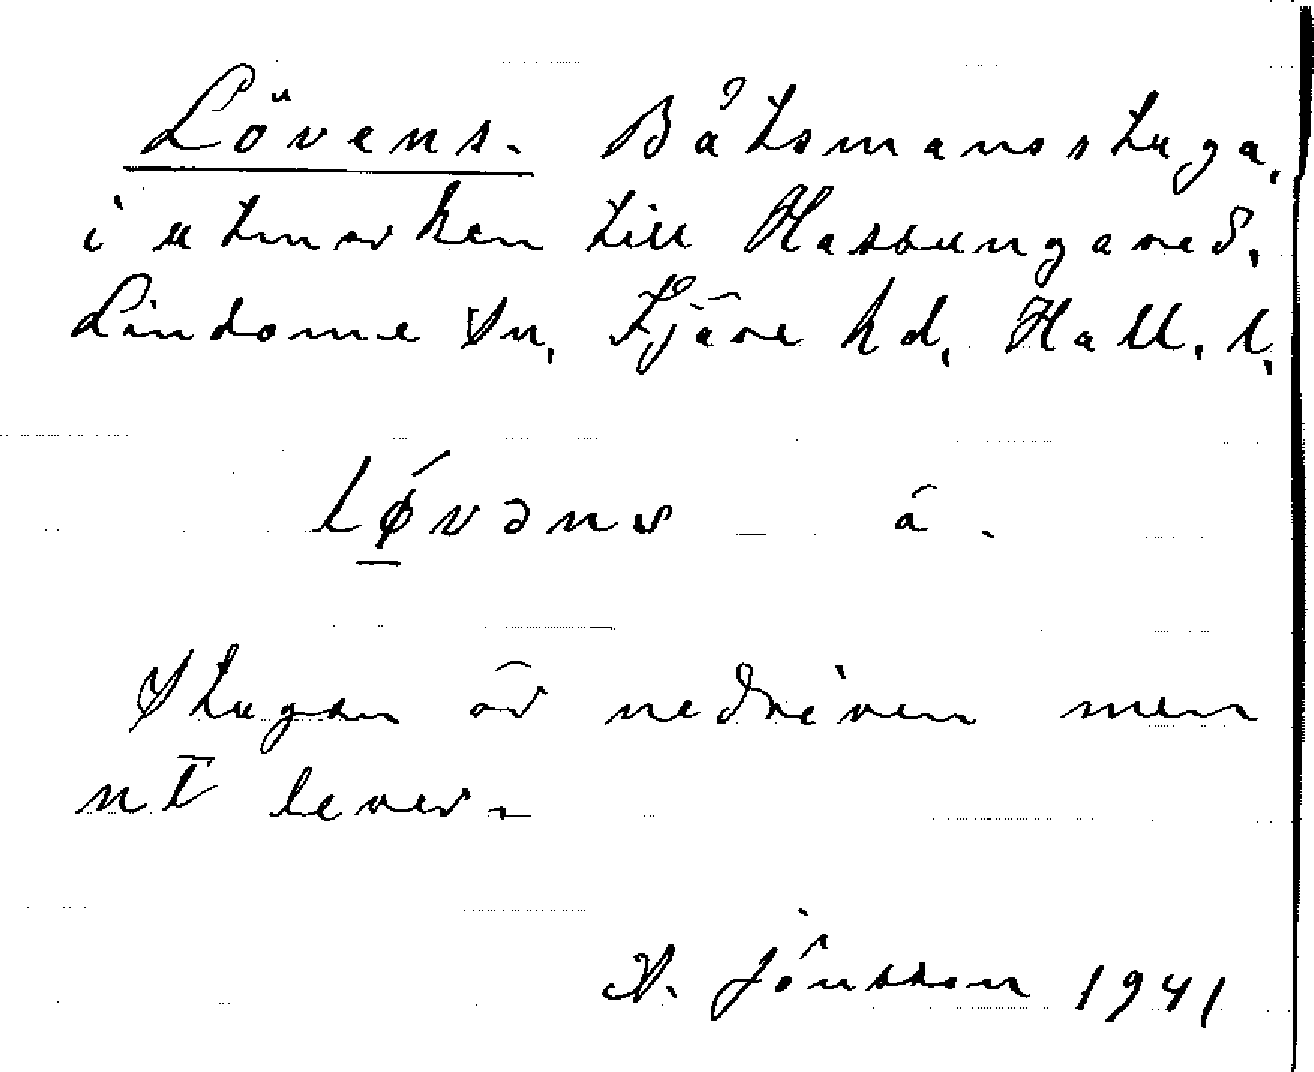 Lövens. Båtsmansstuga,
i utmarken till Hassungared,
Lindome sn, Fjäre hd, Hall. l,
løvəns – â.
Stugan är nedriven men
nt lever.
N. Jönsson 1941